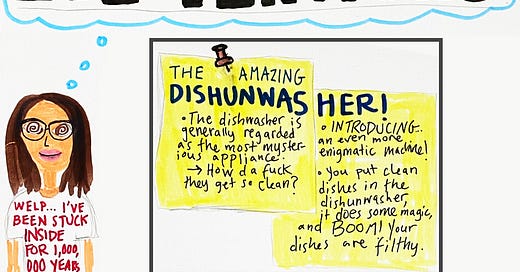 THE AMAZING
DISHUNWASHER!
• The dishwasher is
generally regarded
as the most myster-
ious appliance.
→ How da fuck
they get so clean?
• INTRODUCING..
an even more
enigmatic machine!
• You put clean
dishes in the
dishunwasher,
it does some magic,
and BOOM! Your
dishes are filthy.
WELP... I'VE
BEEN STUCK
INSIDE
FOR 1,000,
000 YEARS